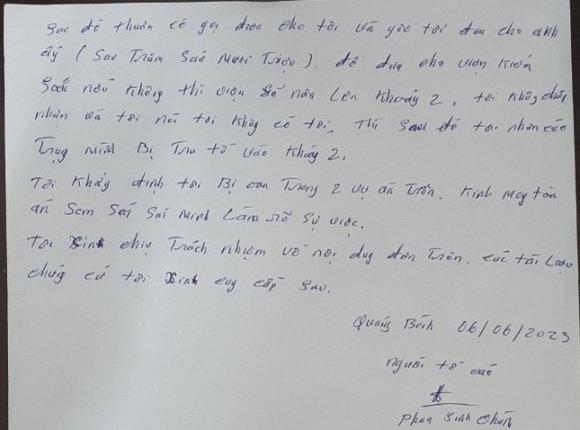 Sau đó thuân có gọi điện cho tôi và yêu tôi đưa cho anh
ấy ( Sáu Trăm Sáu Mươi Triệu ). để đưa cho viện Kiểm
Soát nếu không thì viện sẽ nân Lên Khoảy 2, tôi không chấp
nhận và tôi nói tôi không có tội, Thì Sau đó tôi nhận cáo
Trạg mình Bị Truy tố vào Khảg 2.
Tôi Khảg định tôi Bị oan Trong 2 vụ án Trên. Kính mog tòa
án Sem Sét Sát minh Làm rõ Sự việc.
Tôi Xinh chịu Trách nhiệm về nội dug đơn Trên. các tài Liệu
chứg cứ tôi Xinh cug cấp Sau.
Quảg Bình 06/06/2023
Người tố cáo
Phan Sinh